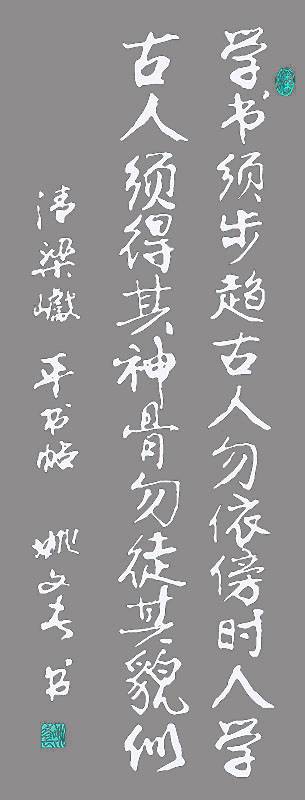 学书须步趋古人勿依傍时人学
古人须得其神骨勿徒其貌似
清梁巘 平书帖 姚文春书